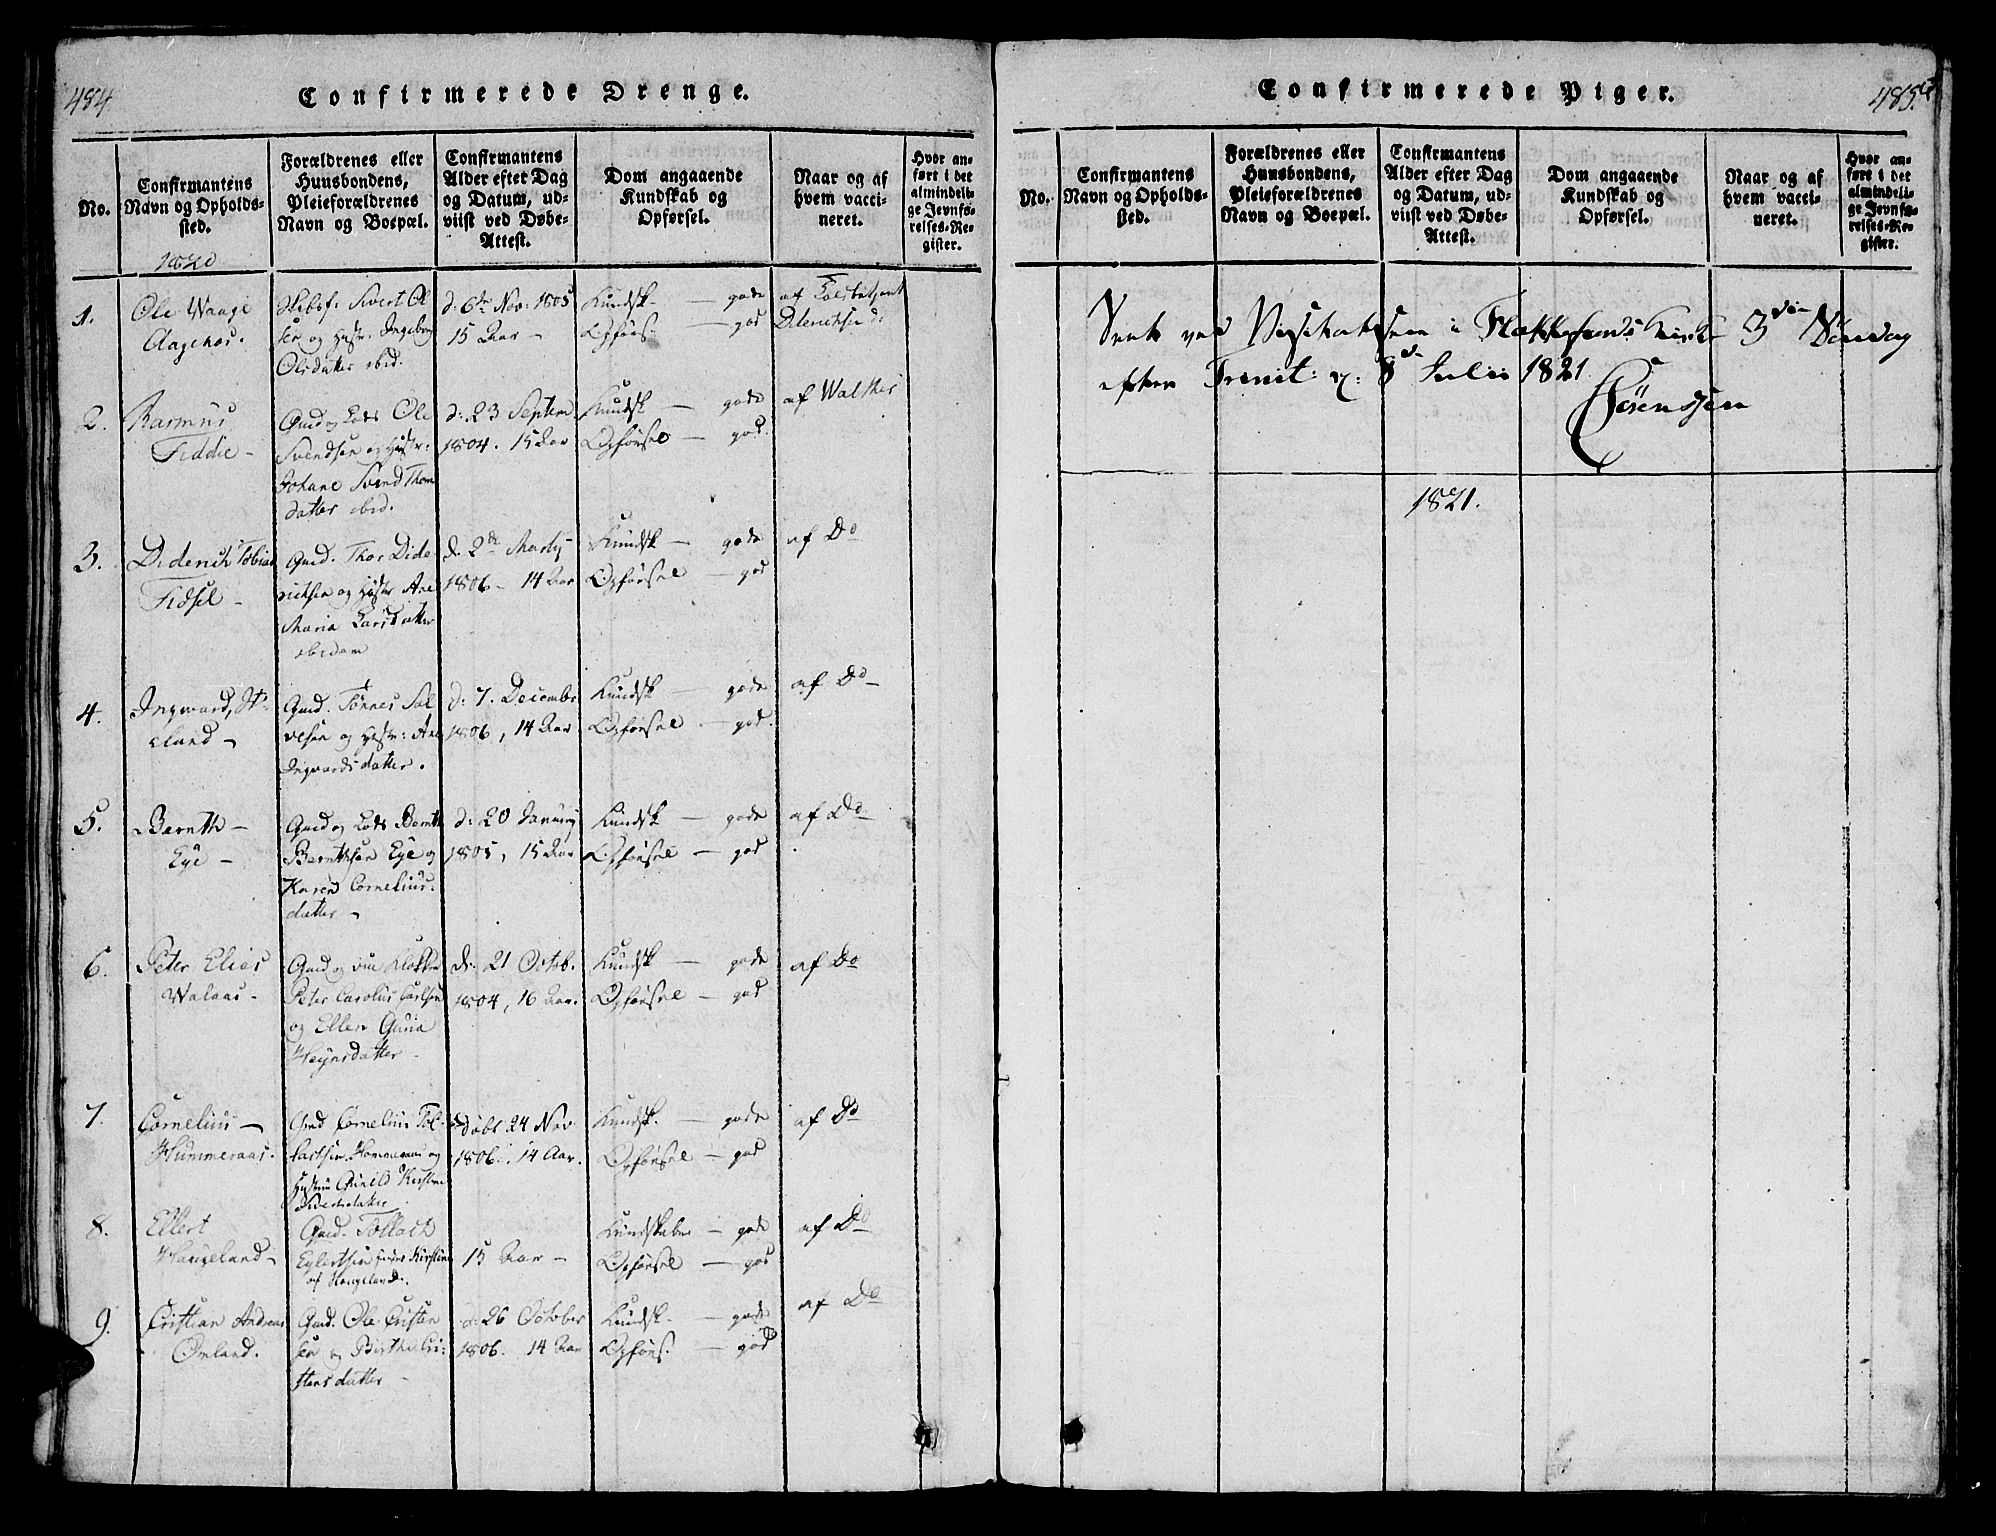 484
Confirmerede Drenge.
No.
Confirmantens
Navn og Opholds-
sted.
Forældrenes eller
Huusbondens,
Pleieforældrenes
Navn og Boepæl.
Confirmantens
Alder efter Dag
og Datum, ud-
viist ved Døbe-
Attest.
Dom angaaende
Kundskab og
Opførsel.
Naar og af
hvem vacci-
neret.
Hvor an-
ført i det
almindeli-
ge Jevnfø-
relses-Re-
gister.
1820
1.
Ole Waage
Aagehoe.
Sivert Ol
sen og Hustr. Ingeborg
Olsdatter ibid.
d. 6te Nov: 1805
15 Aar -
Kundsk. - gode
Opførs: - god
af
Dideriksen
2.
Rasmus
Fiddie -
Gmd og Lods Ole
Svendsen og Hustr:
Johane Svend Thom
datter ibid.
d: 23 Septem.
1804. 15 Aar
Kundsk - gode
Opførsel - god.
af Walther
3.
Diderich Tobias
Fidsel -
Gmd. Thor Dide
richsen og Hustr Ane
Maria Larsdatter
ibidem
d. 2de Martij
1806 - 14 Aar
Kundsk - gode
Opførsel - god
af Do
4.
Ingward,
eland -
Gmd. Tønnes Sal
vesen og Hustr: Ane
Ingwardsdatter.
d. 7. Decembr
1806, 14 Aar
Kundsk - gode
Opførsel - god.
af Do -
5.
Bernth -
Eye -
Gmd og Lods Bernth
Bernthsen Eye og
Karen Cornelius
datter -
d: 20 January
1805, 15 Aar
Kundsk - gode
Opførsel - god
af Do
6.
Peter Elias
Walaas -
Gmd og Klokker
Peter Carolus Carlsen
og Ellen Guria
Heynsdatter -
d: 21 Octob.
1804, 16 Aar.
Kundsk - gode
Opførsel - god
af Do
7.
Cornelius -
Hummeraas.
Gmd Cornelius Tol-
lachsen Hommeraas og
Hustru Gunild Kirstine
Sivertsdatter
døbt 24 Nov
1806. 14 Aar.
Kundsk. - gode
Opførsel - god
af Do
8.
Ellert
Haugeland -
Gmd. Tollach
Eylertsen Kirstine
af Haugeland.
15 Aar -
Kundskaber - gode
Opførsel - god
af Do
9.
Cristian Andreas
Omland.
Gmd. Ole Cristen
sen og Birthe Cri-
stensdatter -
d. 26 October
1806. 14 Aar
Kundsk. - gode
Opførs: - god
af Do
485.
Confirmerede Piger.
No.
Confirmantens
Navn og Opholds-
sted.
Forældrenes eller
Huusbondens,
Pleieforældrenes
Navn og Boepæl.
Confirmantens
Alder efter Dag
og Datum, ud-
viist ved Døbe-
Attest.
Dom angaaende
Kundskab og
Opførsel.
Naar og af
hvem vacci-
neret.
Hvor an-
ført i det
almindeli-
ge Jevnfø-
relses-Re-
gister.
Seet ved Visitatsen i Flekkefiords Kirke 3die Søndag
efter Trinit: d: 8de Julii 1821
Sørenssen
1821.